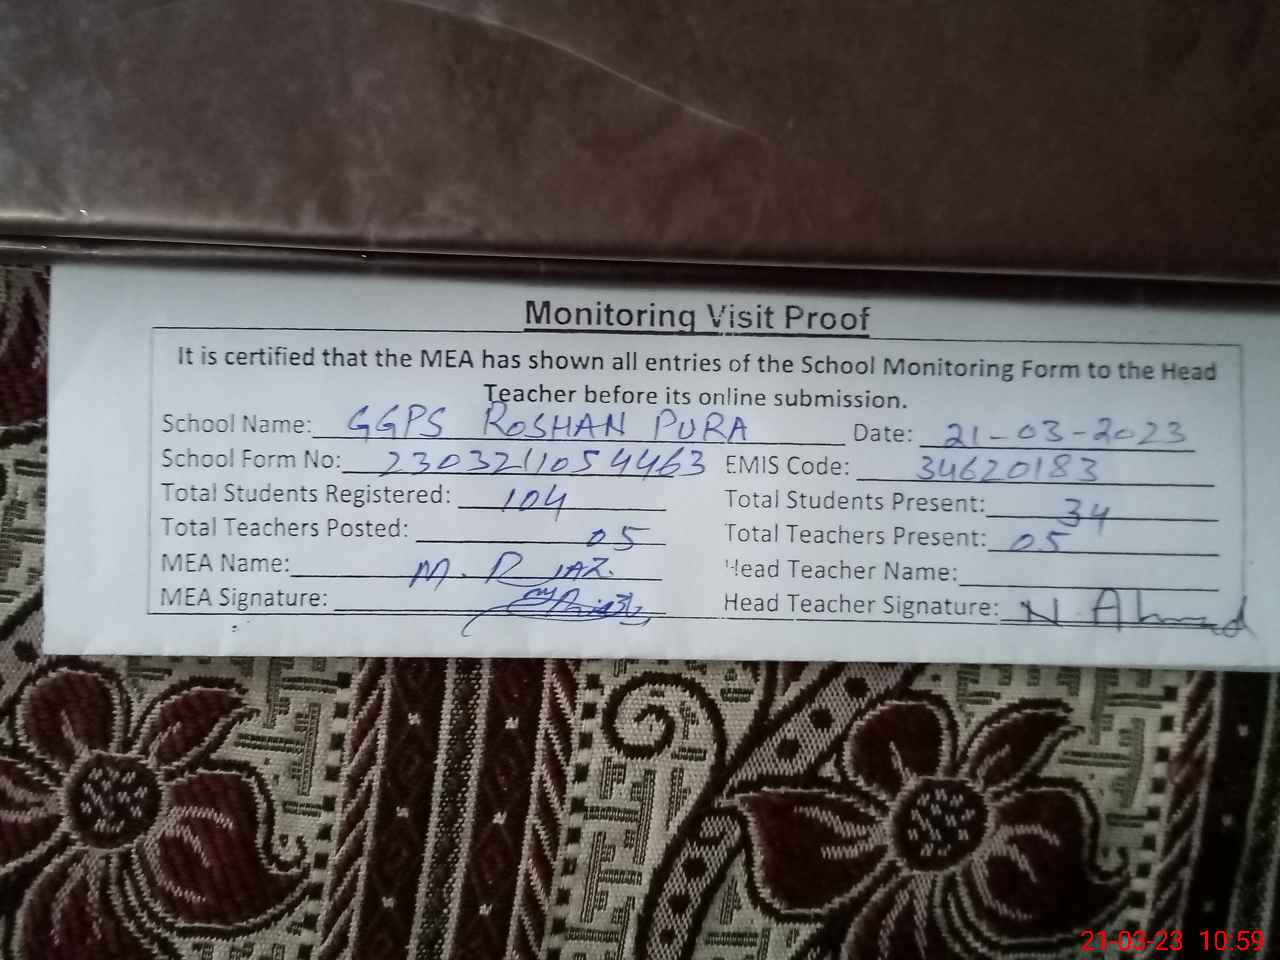 Monitoring Visit Proof
It is certified that the MEA has shown all entries of the School Monitoring Form to the Head
Teacher before its online submission.
School Name: GGPS ROSHAN PURA Date: 21-03-2023
School Form No: 2303211054463 EMIS Code: 34620183
Total Students Registered: 104 Total Students Present: 34
Total Teachers Posted: 05 Total Teachers Present: 05
MEA Name: M. RIAZ. Head Teacher Name:
MEA Signature: Head Teacher Signature: N Ahmad
21-03-23 10:59